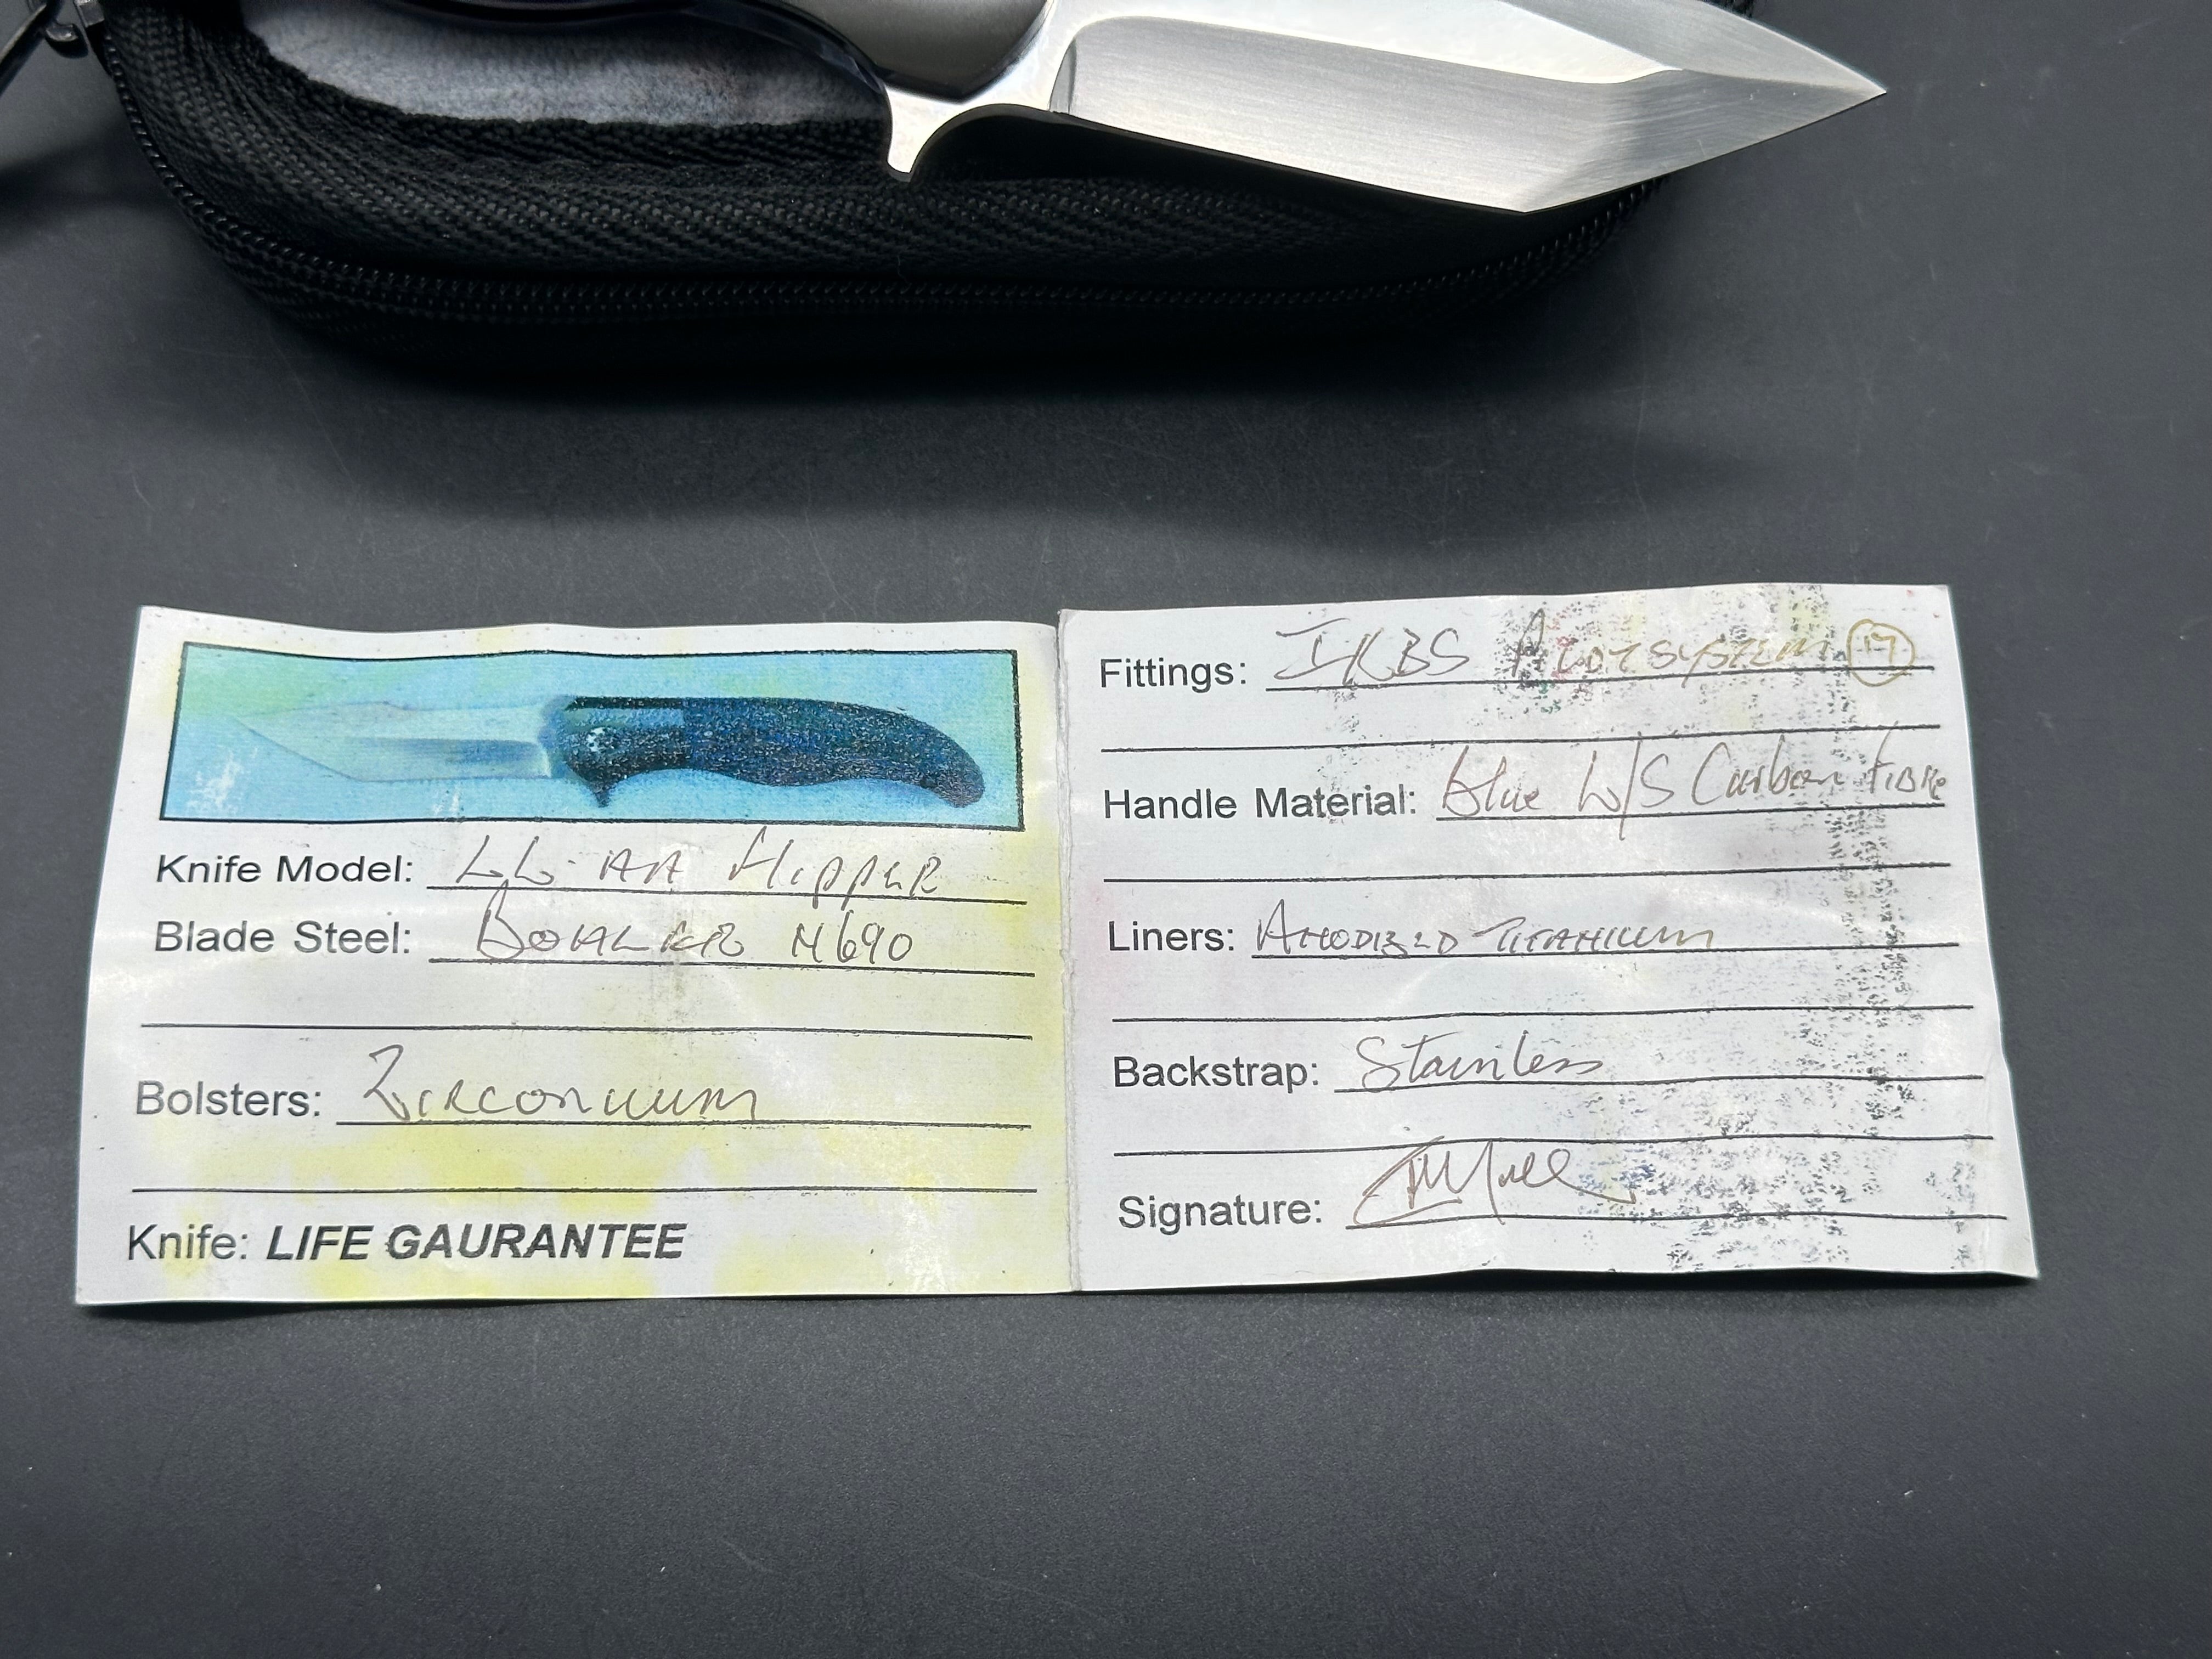 Knife Model: LL-AA Flipper
Blade Steel: BOHLER N690
Bolsters: Zirconium
Knife: LIFE GAURANTEE
Fittings: IKBS Pivot system 17
Handle Material: Blue L/S Carbon Fibre
Liners: Anodized Titanium
Backstrap: Stainless
Signature: